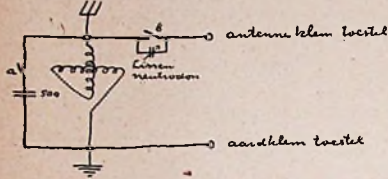 B
antenne klem toestel
A
Lissen
neutrodon
500
aardklem toestel